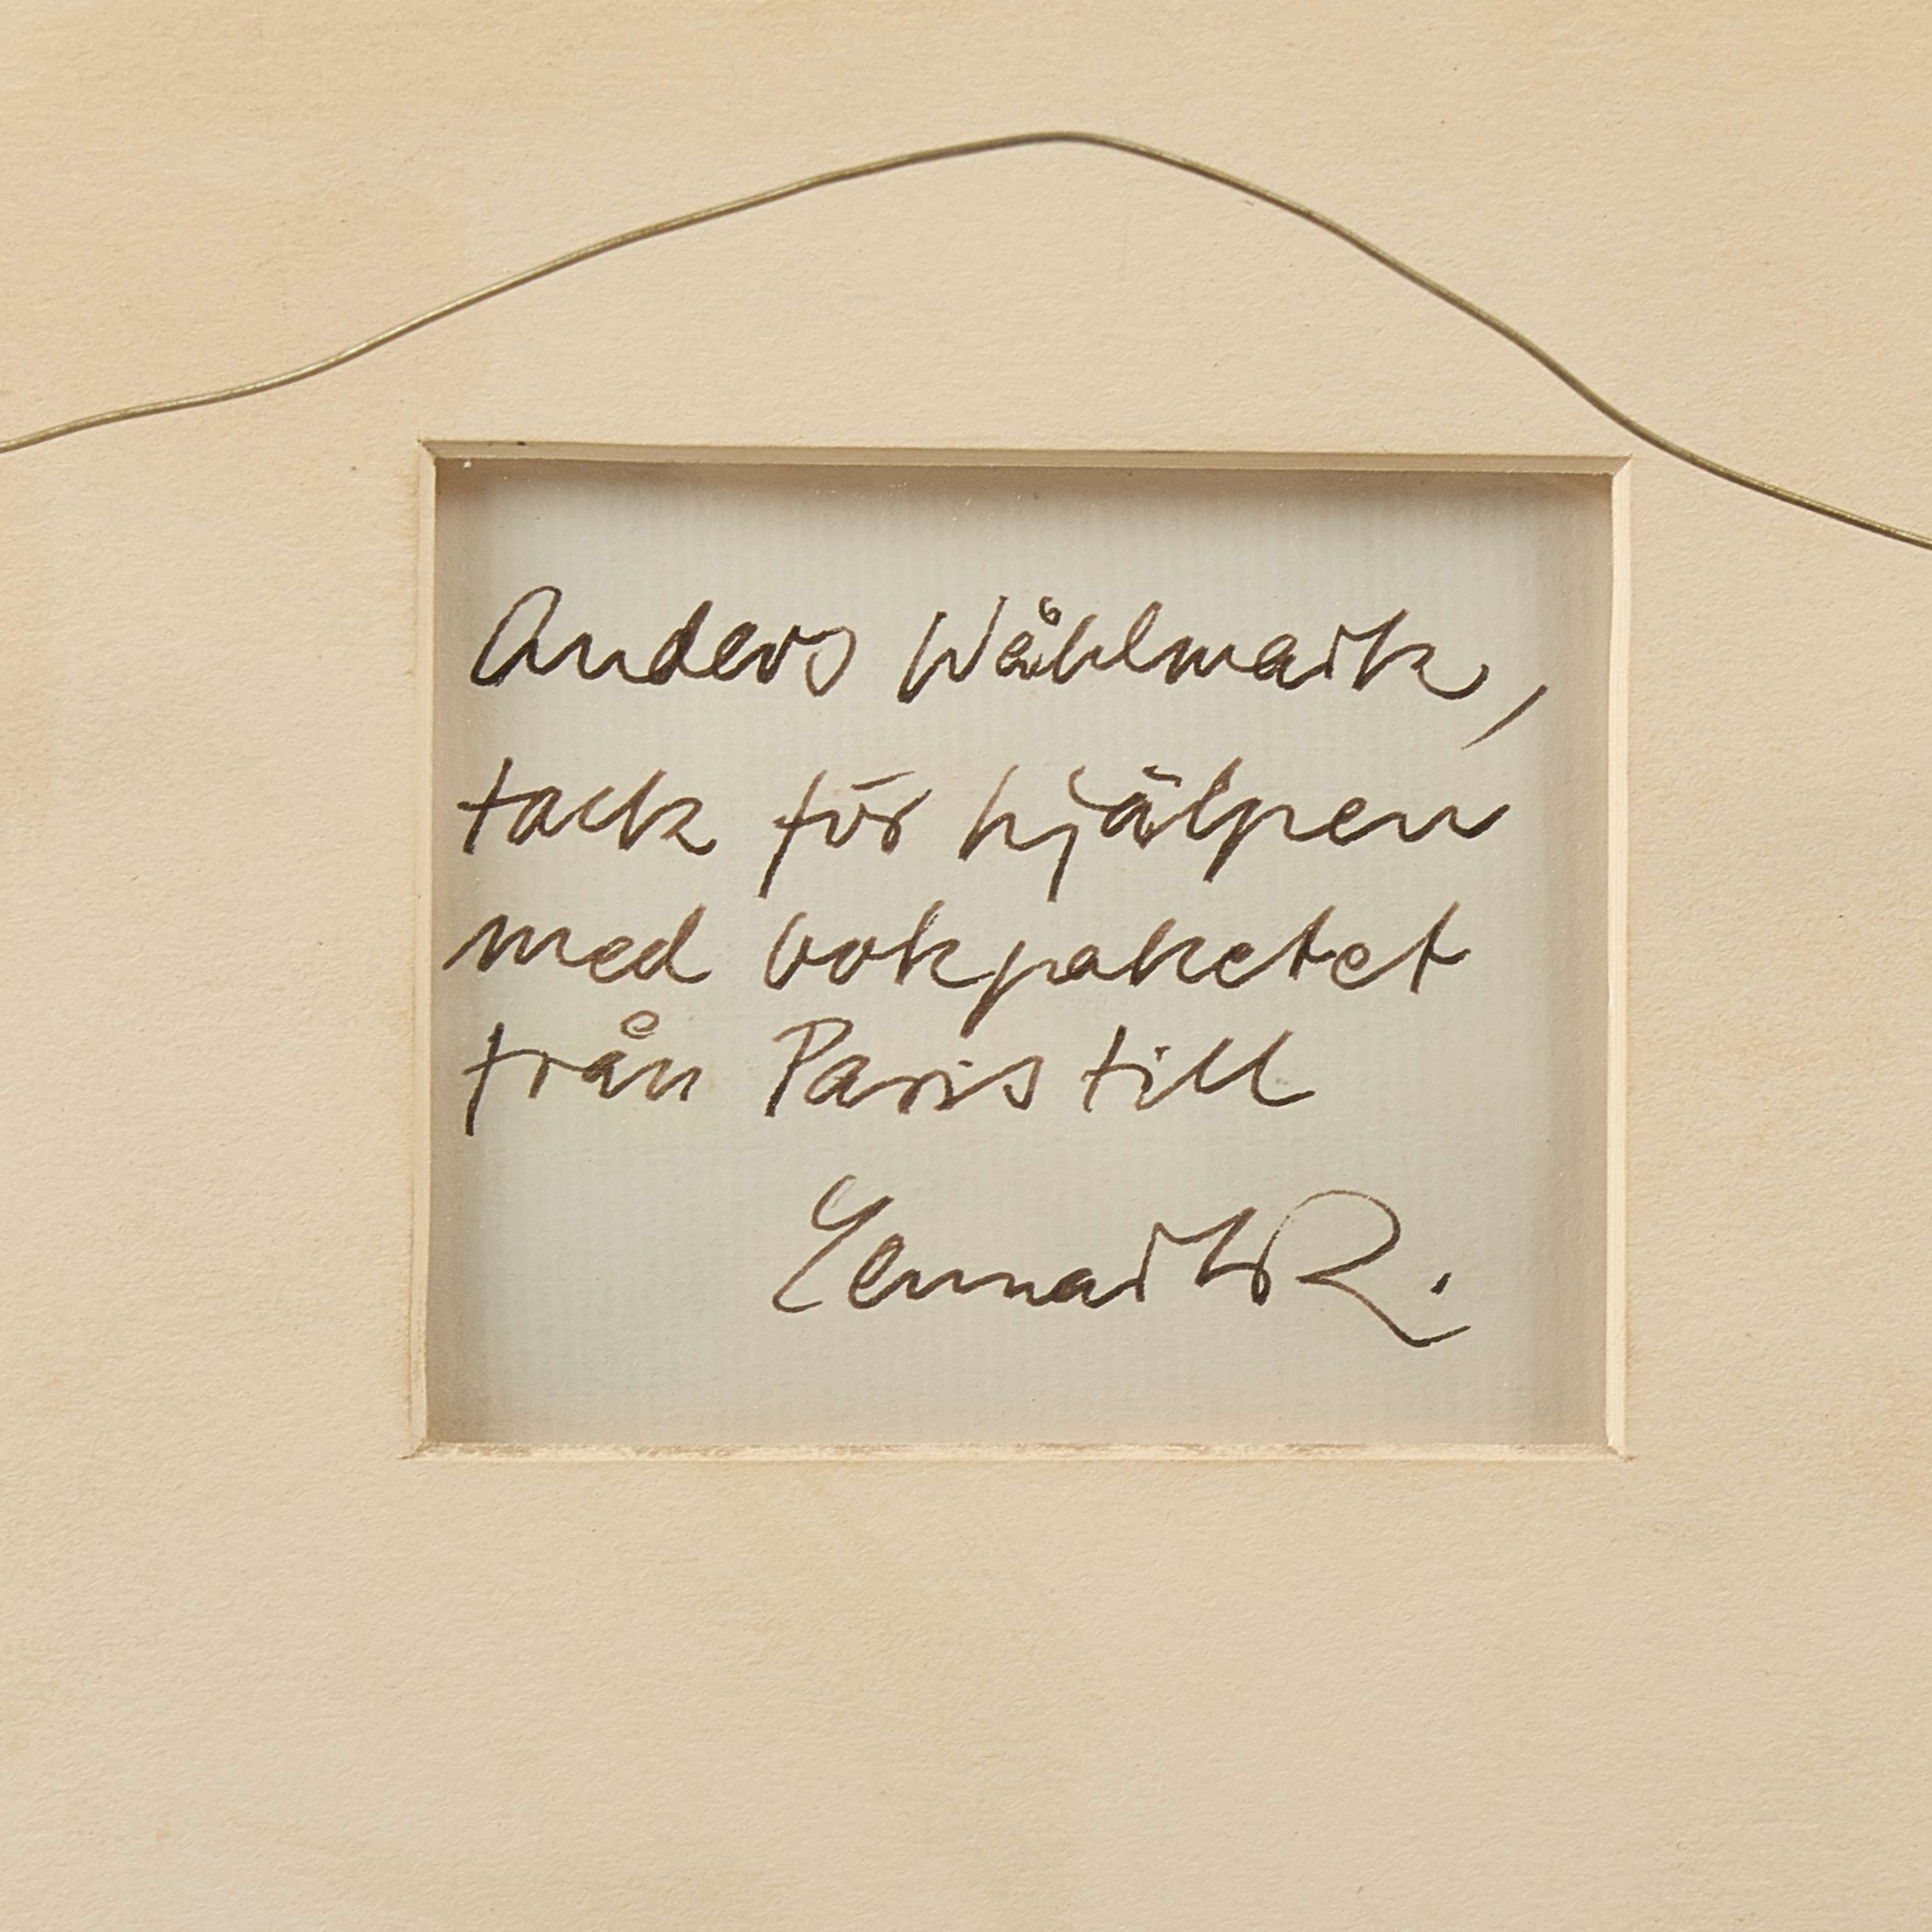 Anders Wåhlmark,
tack för hjälpen
med bokpaketet
från Paris till
Lennart R.